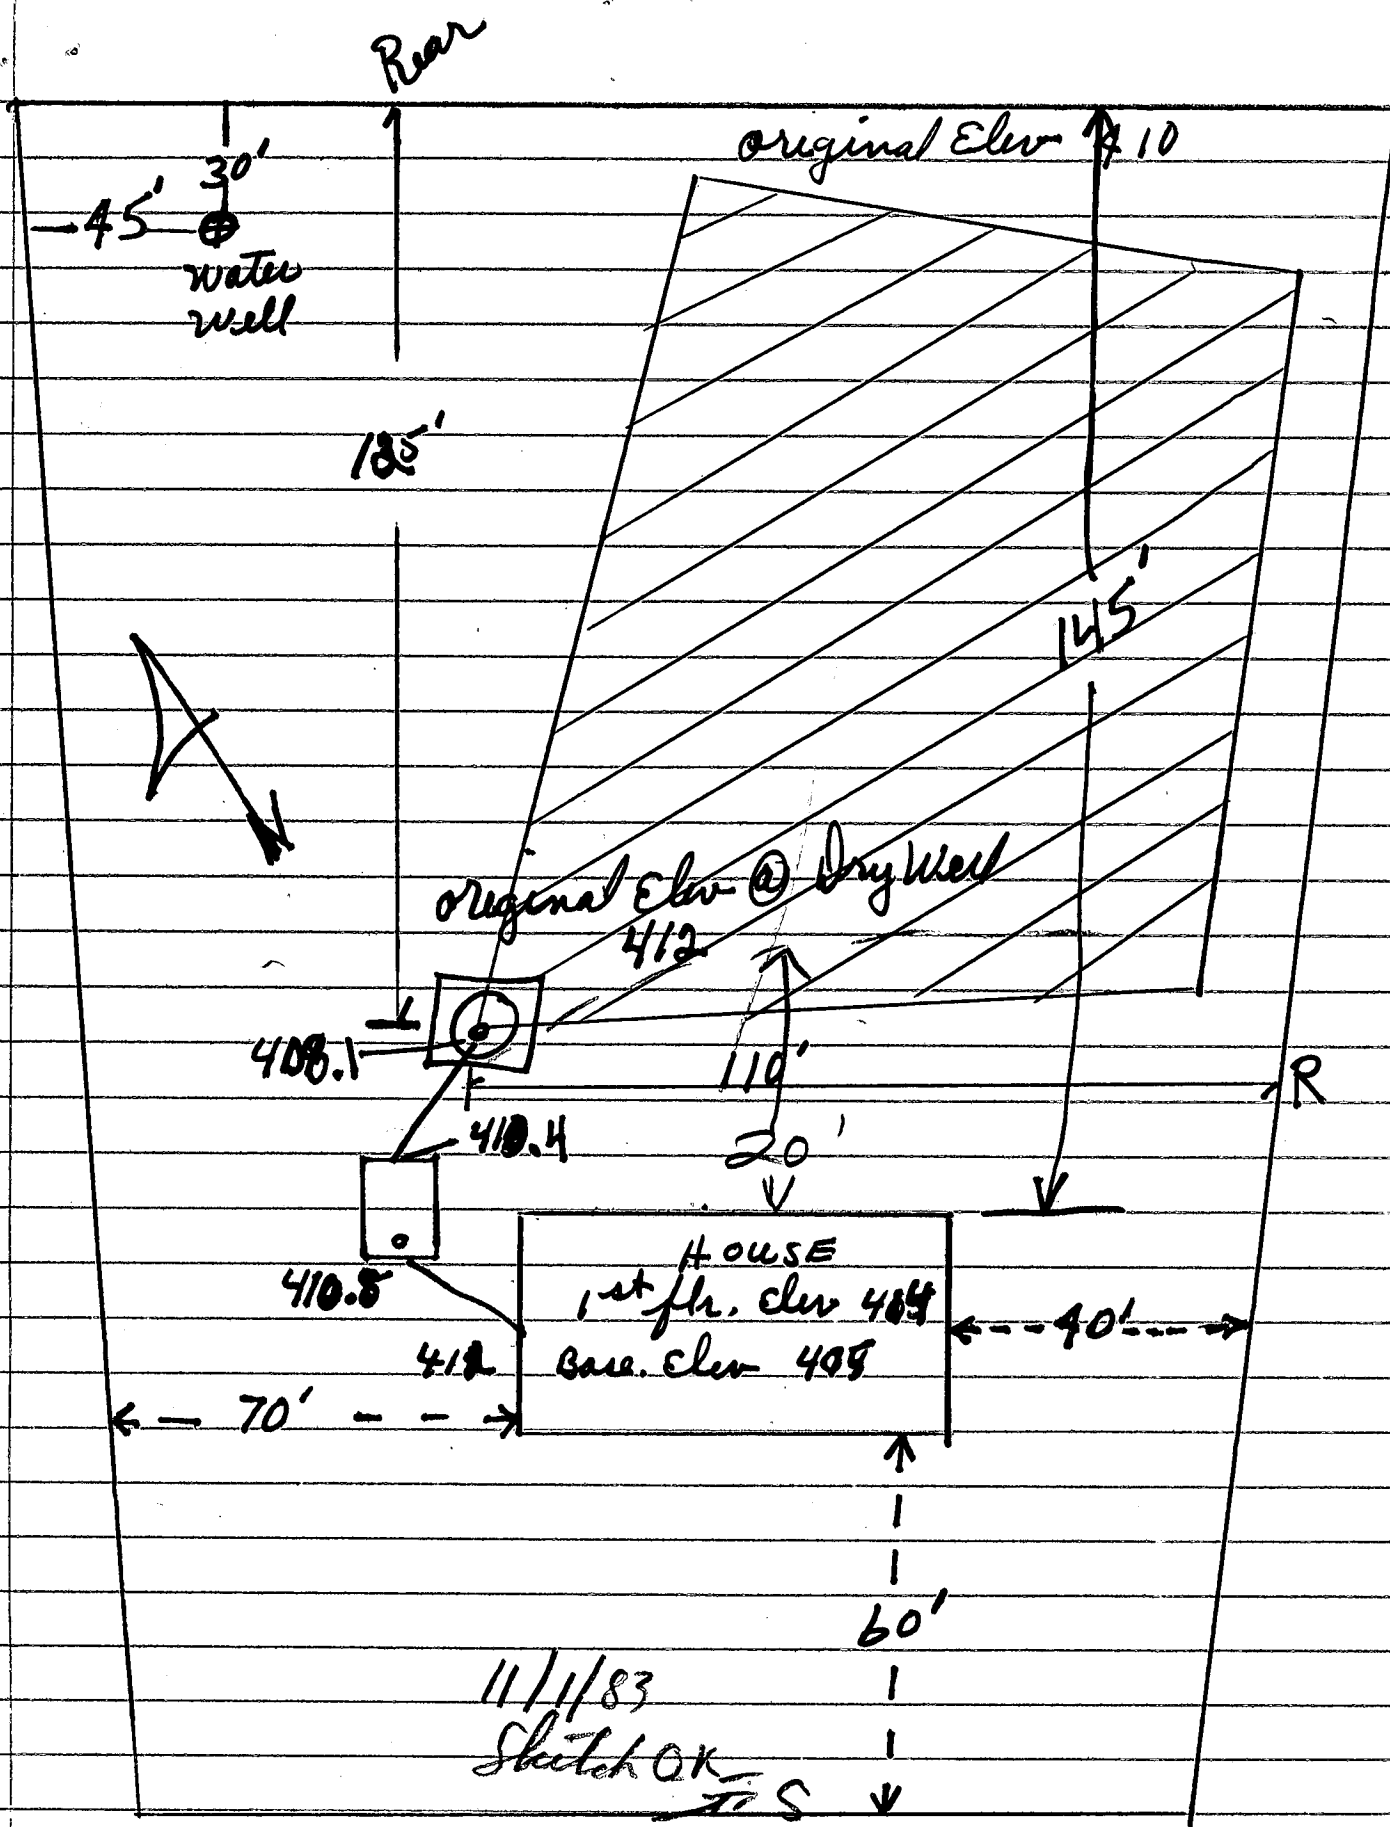 Rear
original Elev 410
30'
45'
water
well
145'
original Elev @ Dry Well
412
408.1
110'
R
410.4
20'
HOUSE
1st flr. Elev
410.5
40'
412
Base. Elev
70'
60'
11/1/83
Sketch OK